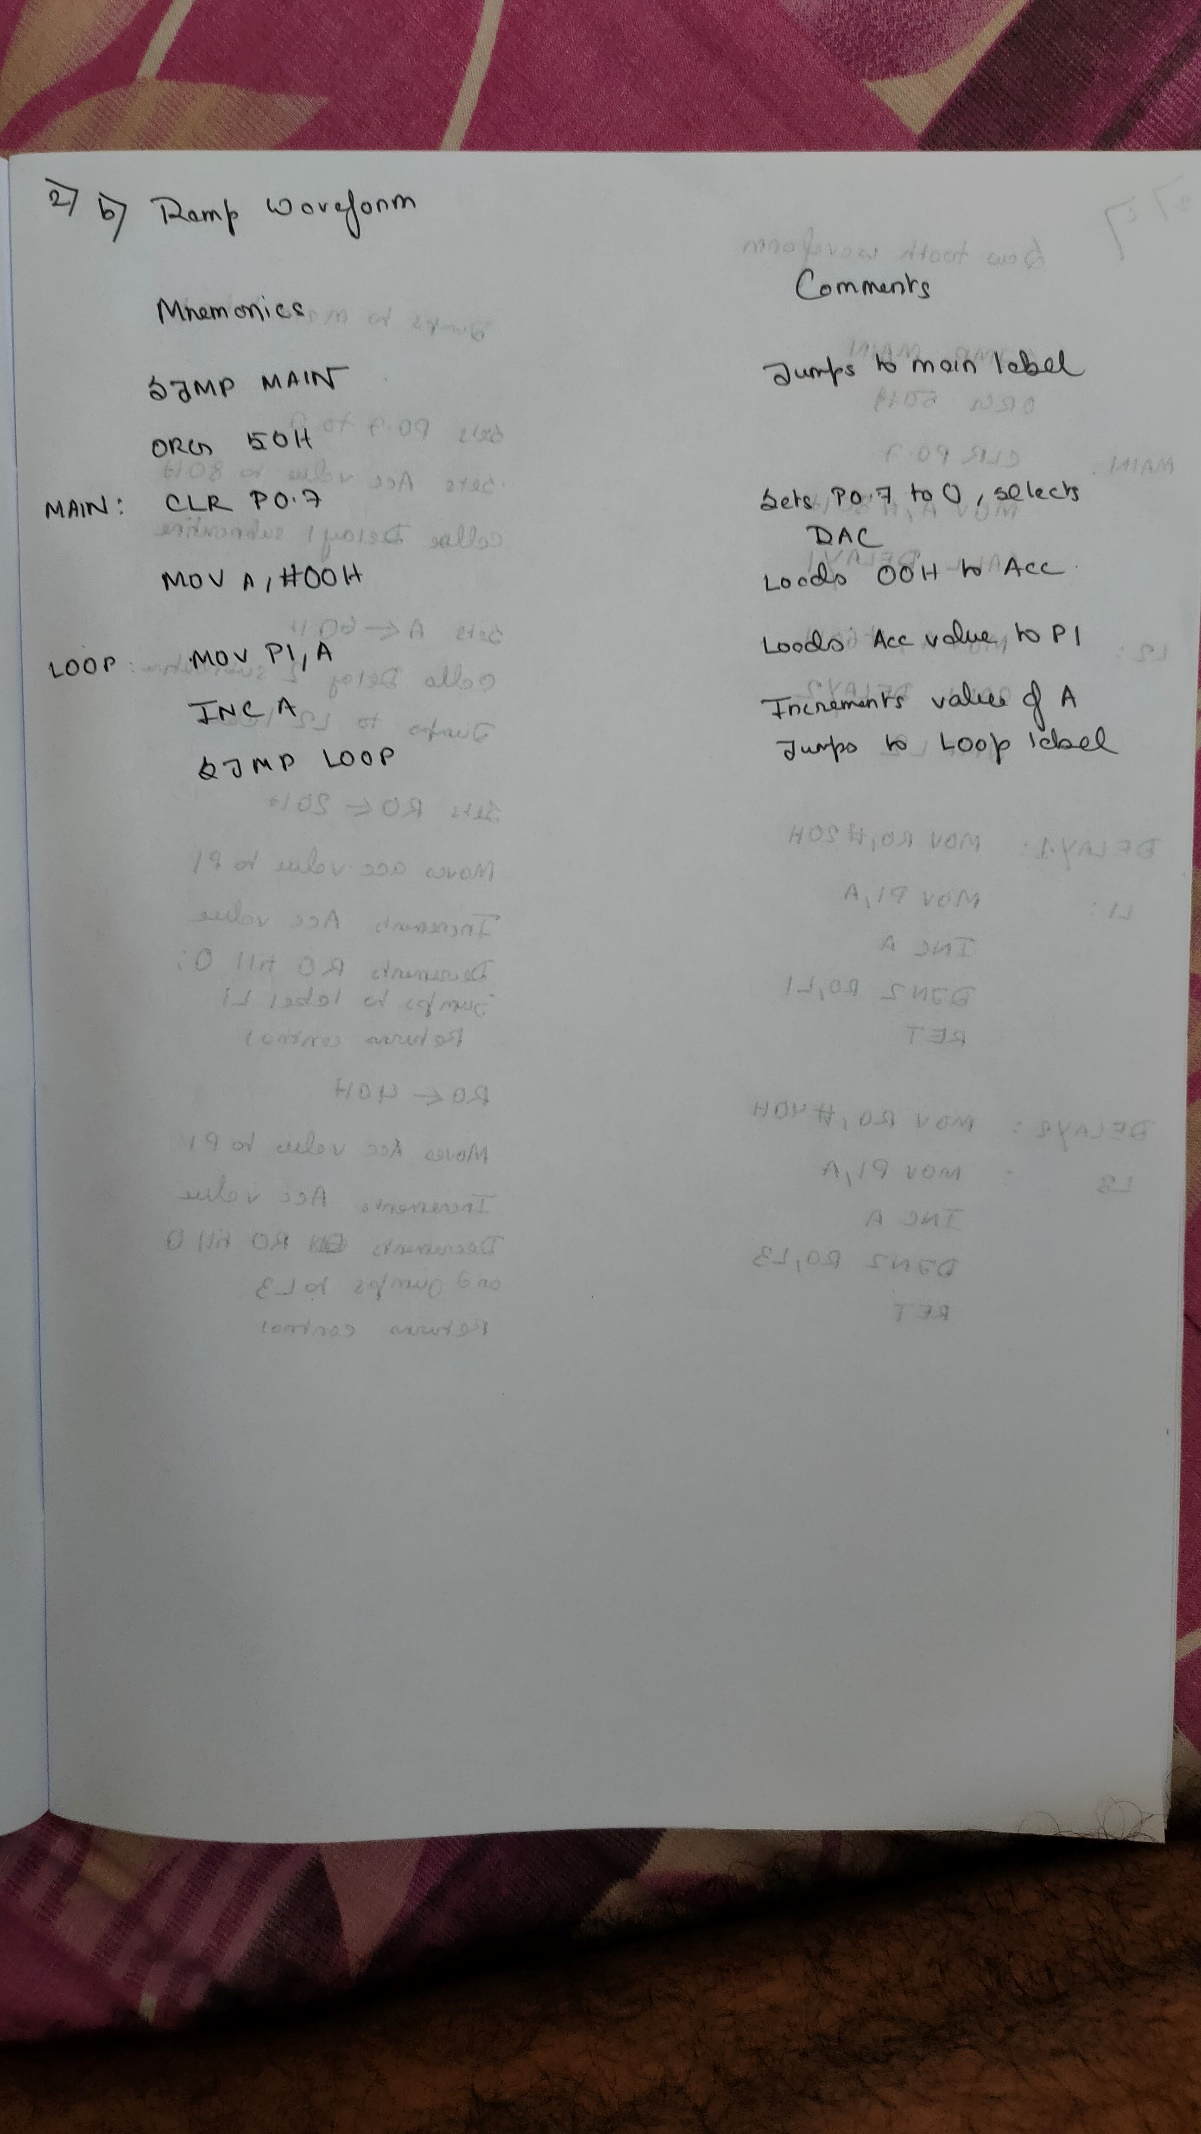 2) b) Ramp Waveform
Mnemonics Comments
SJMP MAIN Jumps to main label
ORG 50H
MAIN: CLR P0.7 Sets P0.7 to 0, selects
DAC
MOV A, #00H Loads 00H to Acc
LOOP: MOV P1, A Loads Acc value to P1
INC A Increments value of A
SJMP LOOP Jumps to Loop label